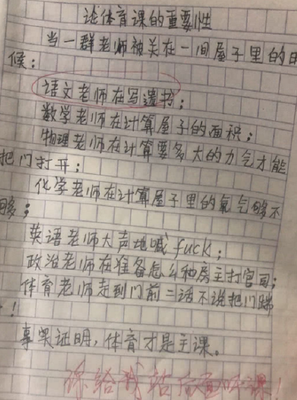 论体育课的重要性
当一群老师被关在一间屋子里的时
候:
语文老师在写遗书;
数学老师在计算屋子的面积;
物理老师在计算要多大的力气才能
把门打开;
化学老师在计算屋子里的氧气够不
够;
英语老师大声地喊fuck;
政治老师在准备怎么和房主打官司;
体育老师走到门前二话不说把门踹
!
事实证明,体育才是主课。
你给我站后面听课!